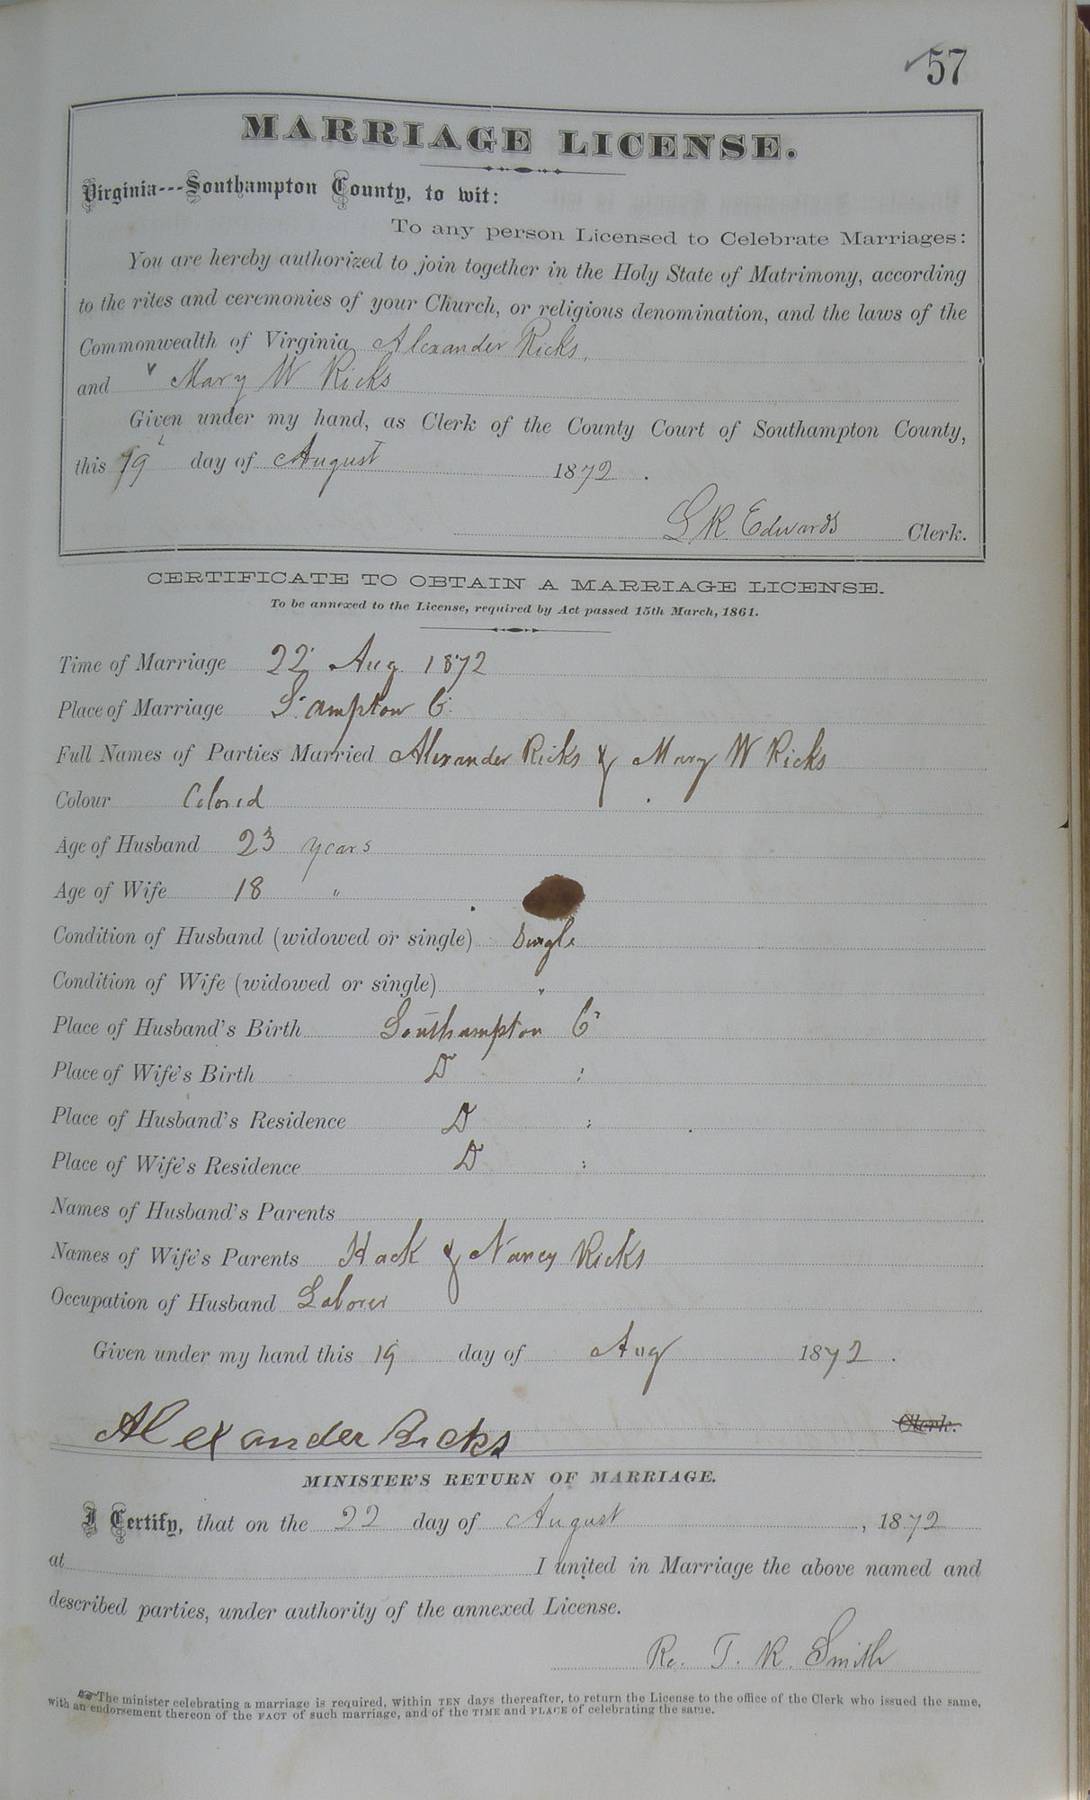 57
MARRIAGE LICENSE.
Virginia---Southampton County, to wit:
To any person Licensed to Celebrate Marriages:
You are hereby authorized to join together in the Holy State of Matrimony, according
to the rites and ceremonies of your Church, or religious denomination, and the laws of the
Commonwealth of Virginia Alexander Ricks,
and Mary W Ricks
Given under my hand, as Clerk of the County Court of Southampton County,
this 19 day of August 1872.
L R Edwards Clerk.
CERTIFICATE TO OBTAIN A MARRIAGE LICENSE.
To be annexed to the License, required by Act passed 15th March, 1861.
Time of Marriage 22 Aug 1872
Place of Marriage S.ampton Co
Full Names of Parties Married Alexander Ricks & Mary W Ricks
Colour Colored
Age of Husband 23 years
Age of Wife 18 "
Condition of Husband (widowed or single) Single
Condition of Wife (widowed or single) "
Place of Husband's Birth Southampton Co
Place of Wife's Birth D :
Place of Husband's Residence D :
Place of Wife's Residence D :
Names of Husband's Parents
Names of Wife's Parents Hack & Nancy Ricks
Occupation of Husband Laborer
Given under my hand this 19 day of Aug 1872.
Alexander Ricks Clerk.
MINISTER'S RETURN OF MARRIAGE.
I Certify, that on the 22 day of August, 1872
at I united in Marriage the above named and
described parties, under authority of the annexed License.
Re. T. R. Smith
The minister celebrating a marriage is required, within TEN days thereafter, to return the License to the office of the Clerk who issued the same,
with an endorsement thereon of the FACT of such marriage, and of the TIME and PLACE of celebrating the same.